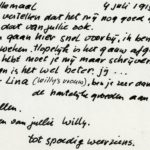 allemaal 4 juli 191
vertellen dat het mij nog goed g
dat van jullie ook.
gaan hier snel voorbij, ik ben
weken. Hopelijk is het gauw afg
hebt moet je mij maar schrijven
an is het wel beter. jij ...
Lina (Willy's vrouw), ben je zeer
de hartelijke groeten aan
ellen.
en van jullie Willy.
tot spoedig weerziens.